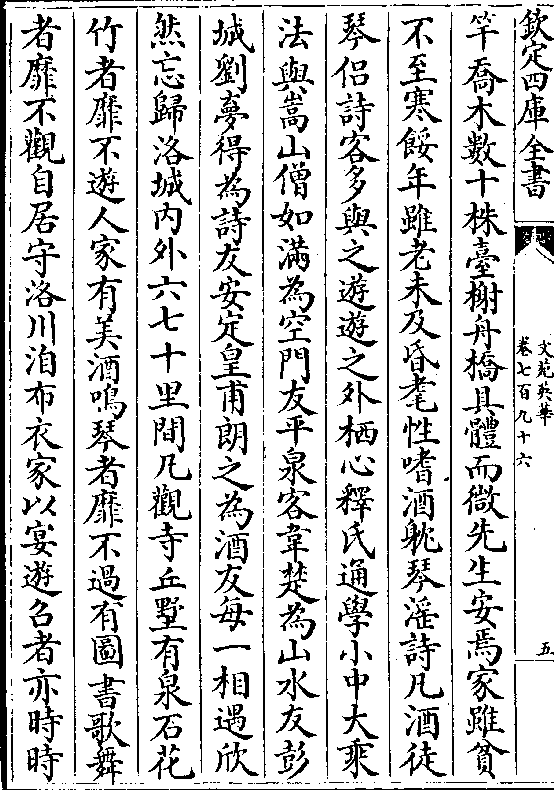 欽定四庫全書
文苑英華
卷七百九十六
五
竿喬木數十株臺榭舟橋具體而微先生安焉家雖貧
不至寒餒年雖老未及昏耄性嗜酒躭琴淫詩凡酒徒
琴侣詩客多與之遊遊之外栖心釋氏通學小中大乘
法與嵩山僧如滿為空門友平泉客韋楚為山水友彭
城劉夢得為詩友安定皇甫朗之為酒友每一相遇欣
然忘歸洛城内外六七十里間凡觀寺丘墅有泉石花
竹者靡不遊人家有美酒鳴琴者靡不過有圖書歌舞
者靡不觀自居守洛川洎布衣家以宴遊召者亦時時